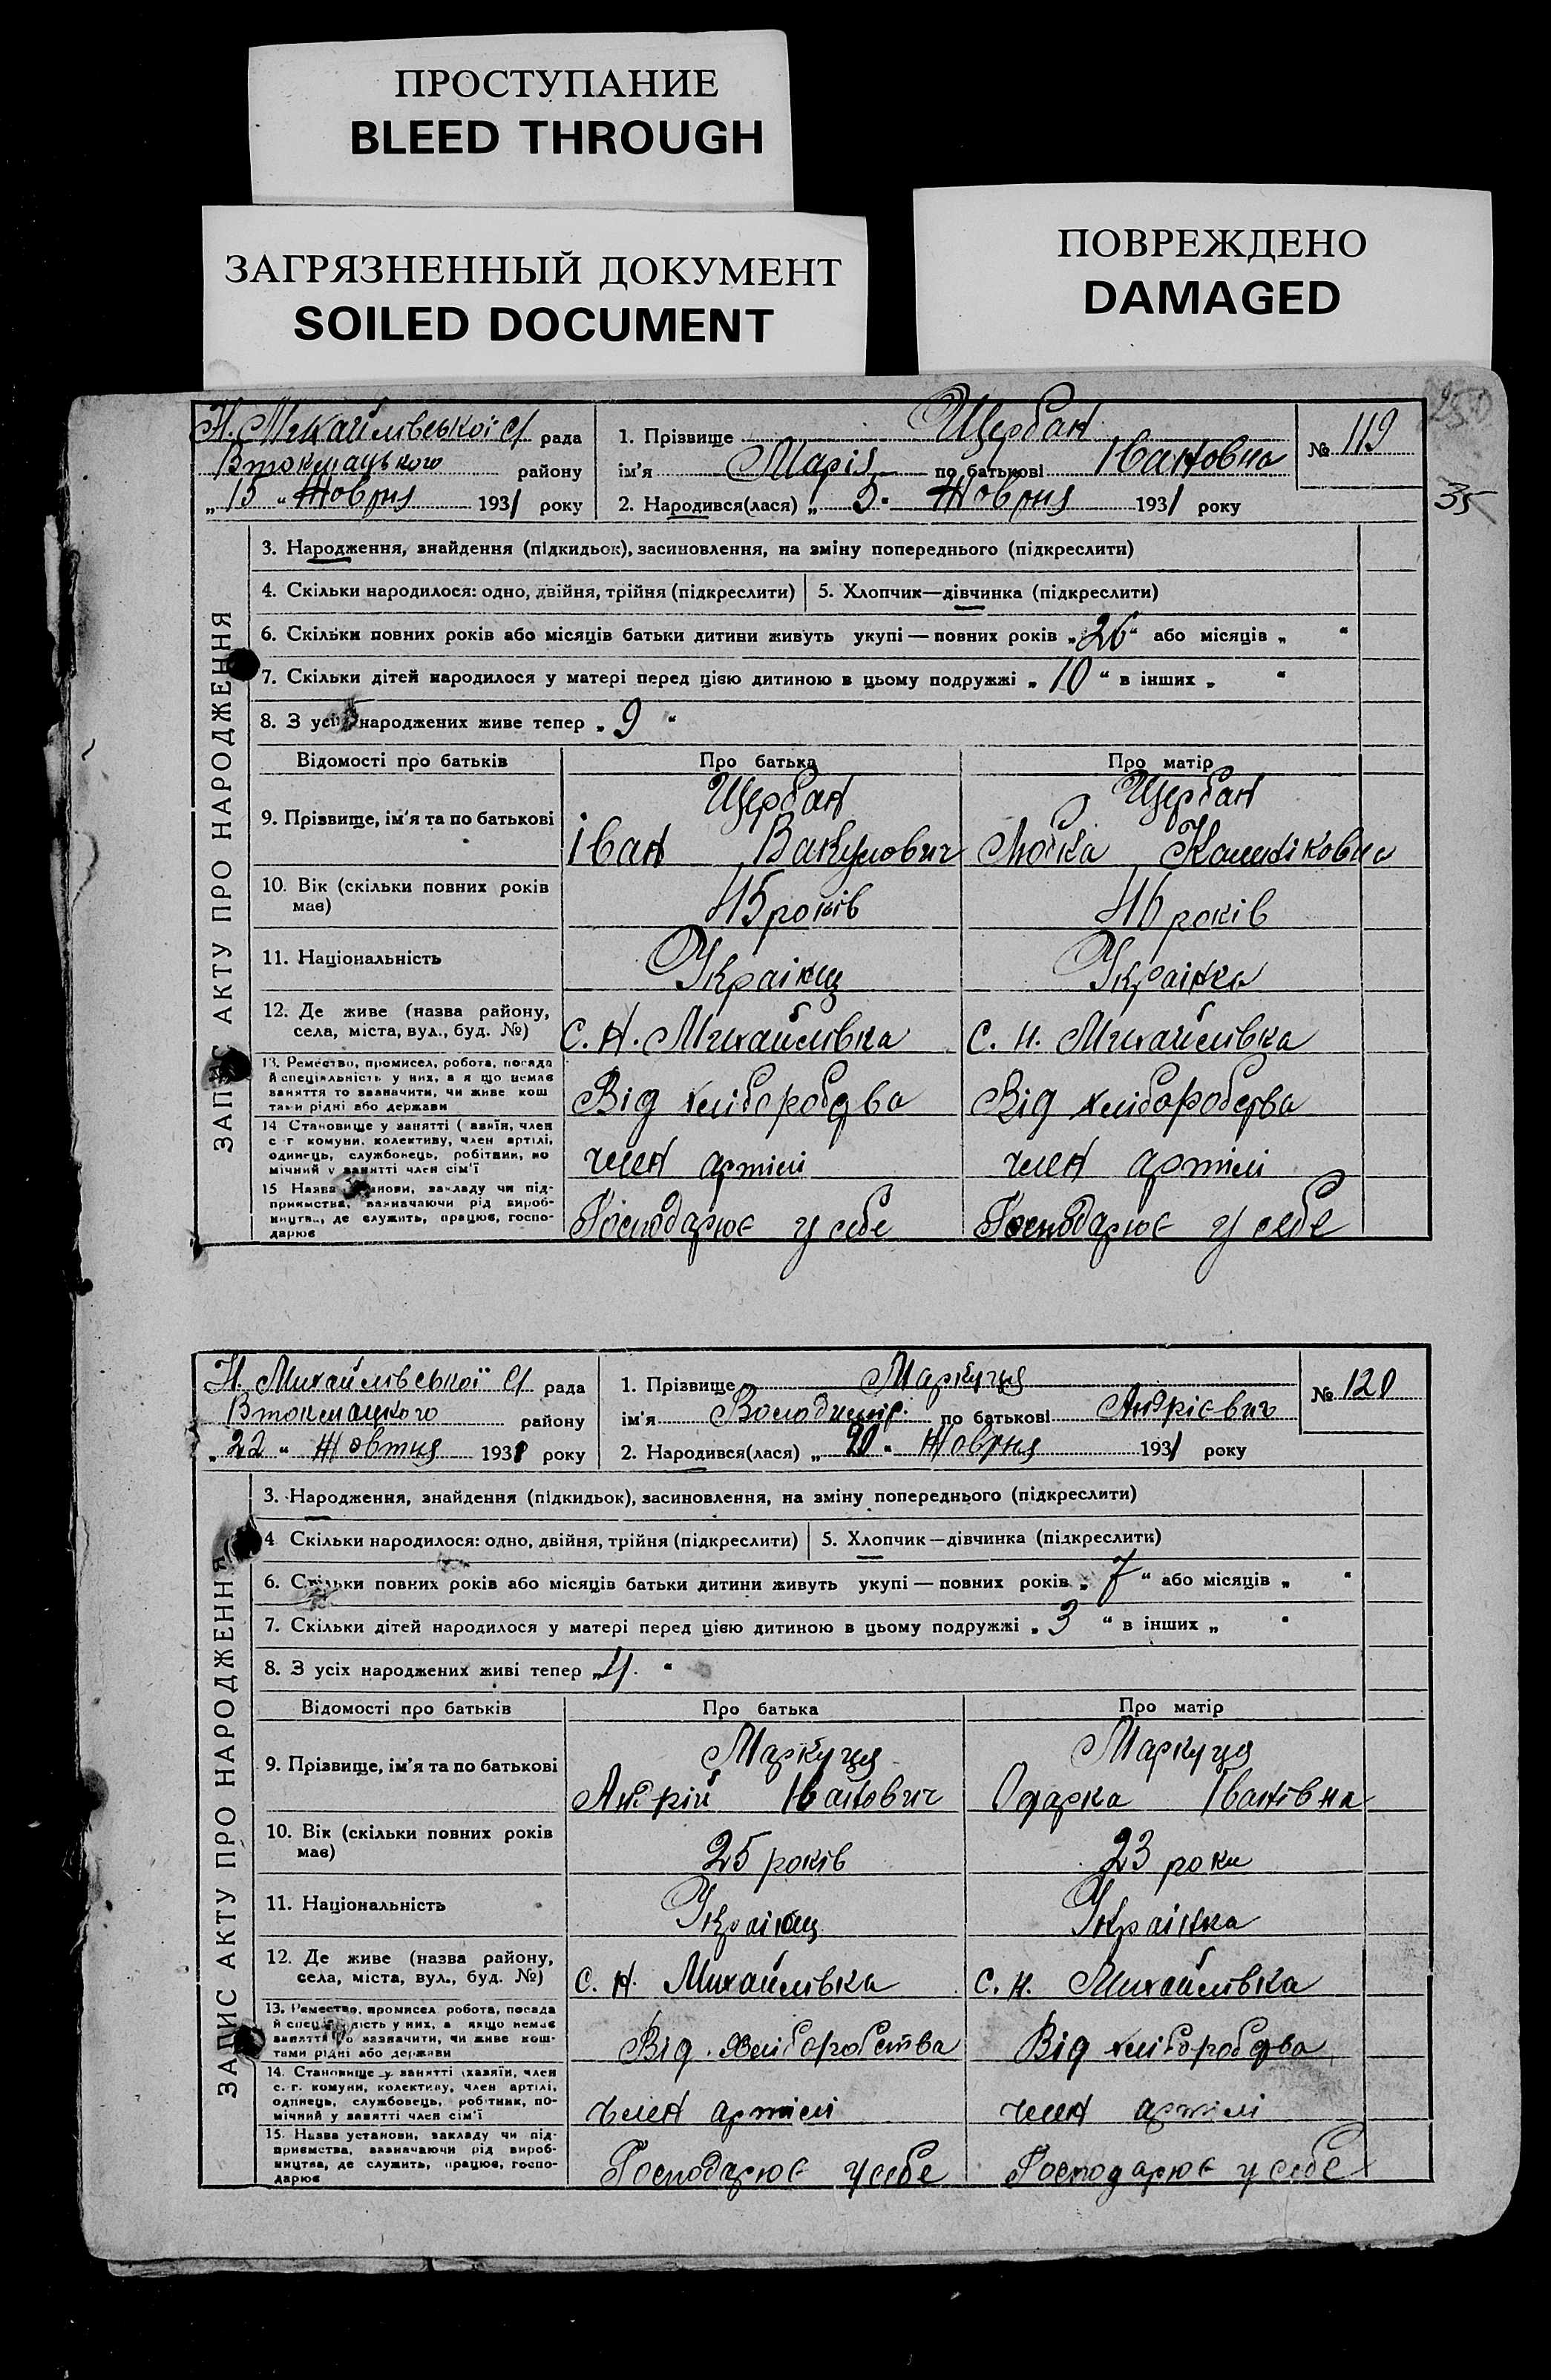 ПРОСТУПАНИЕ
BLEED THROUGH
ЗАГРЯЗНЕННЫЙ ДОКУМЕНТ
SOILED DOCUMENT
ПОВРЕЖДЕНО
DAMAGED
250
35
Н. Михайлівської С/ рада
Втокмацького району
„15 “ Жовтня 1931 року
1. Прізвище Щербан
ім'я Марія по батькові Івановна
2. Народився(лася) „ 5 “ Жовтня 1931 року
№ 119
ЗАПИС АКТУ ПРО НАРОДЖЕННЯ
3. Народження, знайдення (підкидьок), засиновлення, на зміну попереднього (підкреслити)
4. Скільки народилося: одно, двійня, трійня (підкреслити) 5. Хлопчик—дівчинка (підкреслити)
6. Скільки повних років або місяців батьки дитини живуть укупі — повних років „26“ або місяців „ “
7. Скільки дітей народилося у матері перед цією дитиною в цьому подружжі „ 10 “ в інших „ “
8. З усіх народжених живе тепер „ 9 “
Відомості про батьків Про батька Про матір
9. Прізвище, ім'я та по батькові
Щербан Щербан
Іван Вакулович
10. Вік (скільки повних років має) 45 років 46 років
11. Національність Українц Українка
12. Де живе (назва району, села, міста, вул., буд. №) С. Н. Михайлівка С. Н. Михайлівка
13. Ремество, промисел, робота, посада
й спеціяльність у них, а я що немає
заняття то зазначити, чи живе кош
тами рідні або держави
Від хліборобства Від хліборобства
14 Становище у занятті ( азяїн, член
с г комуни, колективу, член артілі,
одинець, службовець, робітник, по
мічний у занятті член сім'ї
член артілі член артілі
15 Назва установи, закладу чи під-
приємства, зазначаючи рід вироб-
ництва, де служить, працює, госпо-
дарює
Господарює у себе Господарює у себе
Н. Михайлівської С/ рада
Втокмацкого району
„22 “ Жовтня 1931 року
1. Прізвище Маркуця
ім'я Володимір по батькові Андрієвич
2. Народився(лася) „ 20 “ Жовтня 1931 року
№ 120
ЗАПИС АКТУ ПРО НАРОДЖЕННЯ
3. Народження, знайдення (підкидьок), засиновлення, на зміну попереднього (підкреслити)
4 Скільки народилося: одно, двійня, трійня (підкреслити) 5. Хлопчик—дівчинка (підкреслити)
6. Скільки повних років або місяців батьки дитини живуть укупі — повних років „ 7 “ або місяців „ “
7. Скільки дітей народилося у матері перед цією дитиною в цьому подружжі „ 3 “ в інших „ “
8. З усіх народжених живі тепер „4. “
Відомості про батьків Про батька Про матір
9. Прізвище, ім'я та по батькові
Маркуця Маркуця
Андрій Іванович Одарка Іванівна
10. Вік (скільки повних років має) 25 років 23 роки
11. Національність Українц Українка
12. Де живе (назва району, села, міста, вул., буд. №) С. Н. Михайлівка С. Н. Михайлівка
13. Ремество, промисел робота, посада
й спеціяльність у них, а якщо немає
заняття то зазначити, чи живе кош-
тами рідні або держави
Від хліборобства Від хліборобства
14. Становище у занятті (хазяїн, член
с. г. комуни, колективу, член артілі,
одинець, службовець, робітник, по-
мічний у занятті член сім'ї
член артілі член артілі
15. Назва установи, закладу чи під-
приємства, зазначаючи рід вироб-
ництва, де служить, працює, госпо-
дарює
Господарює у себе Господарює у себе